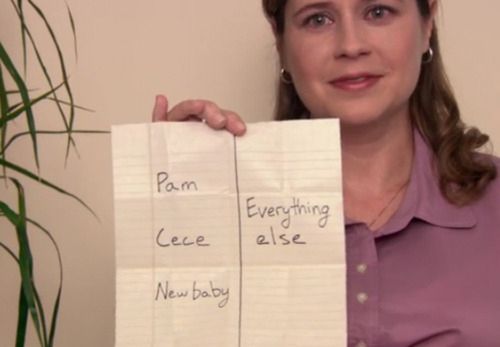 Pam
Cece
New baby
Everything
else